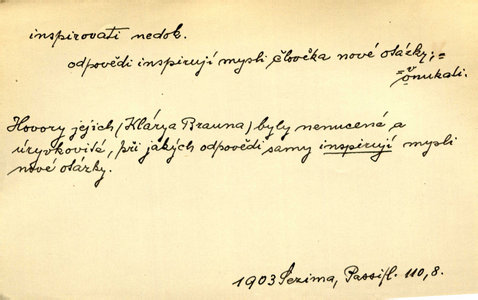 inspirovati nedok.
odpovědi inspirují mysli člověka nové otázky; =
= vnukati.
Hovory jejich (Kláry a Brauna) byly nenucené a
úryvkovité, při jakých odpovědi samy inspirují mysli
nové otázky.
1903 Sezima, Passifl. 110, 8.